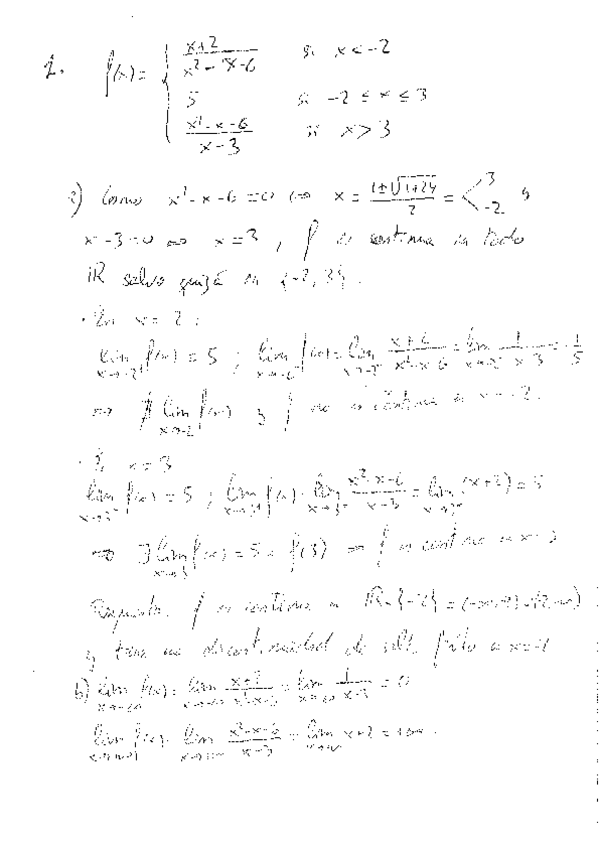 1. f(x) = { x+2 / x² - x - 6 si x < -2
5 si -2 ≤ x ≤ 3
x² - x - 6 / x - 3 si x > 3
a) Como x² - x - 6 = 0 ⇔ x = 1 ± √1+24 / 2 = < 3 -2 y
x - 3 = 0 ⇔ x = 3 , f es continua en todo
ℝ salvo quizá en {-2, 3}.
· En x = 2 :
lim x→-2⁺ f(x) = 5 ; lim x→-2⁻ f(x) = lim x→-2⁻ = lim x→-2⁻ 1 / x-3 = -1/5
⇒ ∄ lim x→-2 f(x) y f no es continua en x = -2.
· En x = 3
lim x→3⁻ f(x) = 5 ; lim x→3⁺ f(x) = lim x→3⁺ x² - x - 6 / x - 3 = lim x→3⁺ (x+2) = 5
⇒ ∃ lim x→3 f(x) = 5 = f(3) ⇒ f es continua en x = 3
f es continua en ℝ - {-2} =
y una discontinuidad de salto finito en
b) lim x→-∞ f(x) = lim x→-∞ x+2 / x²-x-6 = lim x→-∞ 1 / x-3 = 0
lim x→+∞ f(x) = lim x→+∞ x²-x-6 / x-3 = lim x→+∞ x+2 = +∞.